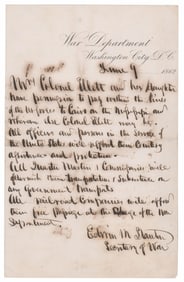 War Department
Washington City, D.C.
June 9 1862
Mrs Colonel Ellet and her daughter
have permission to pass within the lines
of the US forces to Cairo on the Mississippi and
wherever else Colonel Ellet may be
All officers and persons in the service of
the United States will afford them courtesy
assistance and protection
All Quarter Masters & Commissaries will
furnish them transportation & subsistence on
any Government transports
All railroad Companies will afford
them free passage at the charge of the War
Department
Edwin M Stanton
Secretary of War